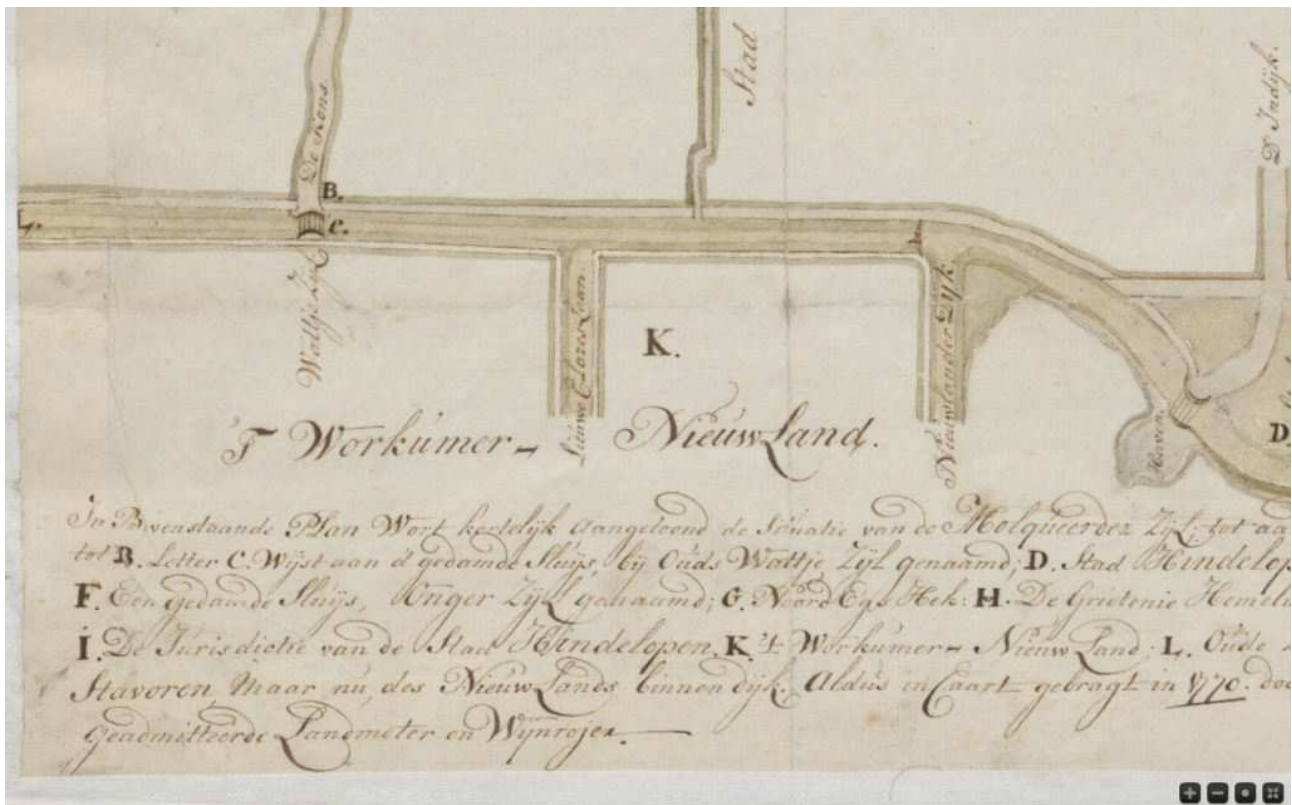 Stad
D' Indijk.
De Kons.
B.
L.
C.
Waltje Zijl
Lieuwe Clares Laan
K.
Nieuwlander Dijk
Haven
D.
'T Workumer- Nieuw Land.
In Bovenstaande Plan Wort kortelijk aangetoond de Situatie van de Molqueerder Zijl; tot aa
tot B. Letter C. Wijst aan d' gedamde Sluijs, bij Ouds Waltje Zijl genaamd; D. Stad Hindelop
F. Een gedamde Sluijs, Unger Zijl genaamd; G. Noard Egs Hek: H. De Grietenie Hemelu
I. De Jurisdictie van de Stad Hindelopen, K. 't Workumer- Nieuw Land; L. Oude
Stavoren, Maar nu, des Nieuw Lands binnen dijk. Aldus in Caart gebragt in 1770. doo
Geadmitteerde Landmeter en Wijnrojer.